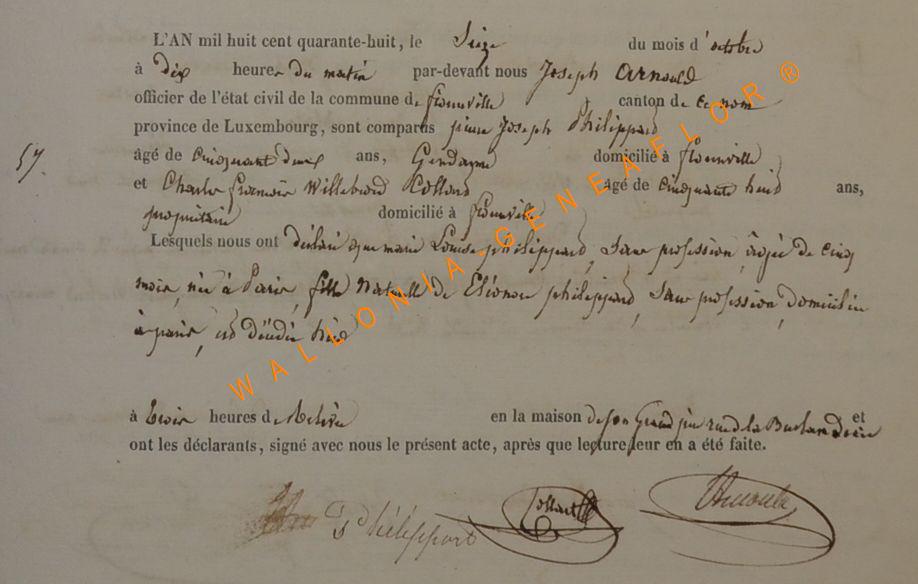 L'AN mil huit cent quarante-huit, le Seize du mois d'octobre
à dix heures du matin par-devant nous Joseph Arnould
officier de l'état civil de la commune de florenville canton de ce nom
province de Luxembourg, sont comparus pierre Joseph Philippard
57. âgé de cinquante deux ans, Gendarme domicilié à florenville
et Charles françois Willebrord Collard âgé de cinquante huit ans,
propriétaire domicilié à florenville
Lesquels nous ont déclaré que marie Louise philippard, sans profession, âgée de cinq
mois, née à Paris, fille naturelle de Eléonore philippard, sans profession, domiciliée
à paris, est décédée hier
à trois heures de relevée en la maison de son Grand père rue de la et
ont les déclarants, signé avec nous le présent acte, après que lecture leur en a été faite.
Philippart Collard Arnould
WALLONIA-GENEAELOR®